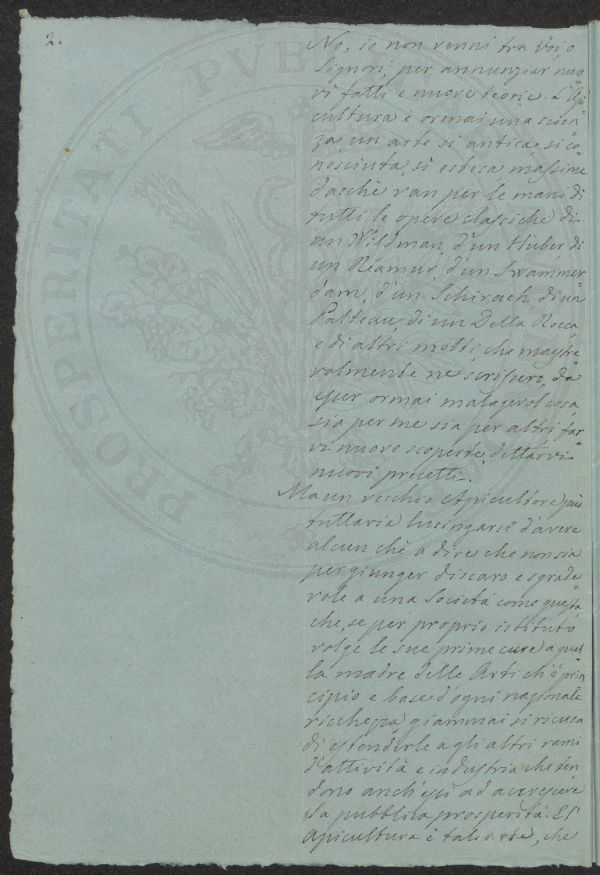 2.
No, io non venni tra Voi, o
Signori, per annunziar nuo=
vi fatti e nuove teorie. L'Api
cultura è ormai una scien=
za un arte si antica si co=
nosciuta, si estesa massime
dacchè van per le mani di
tutti le opere classiche di
un Wildman, d'un Huber, di
un Réamur, d'un Swammer
dam, d'un Schirach di un
Palteau, di un Della Rocca,
e di altri molti, che maestre
volmente ne scrissero, da
esser ormai malagevol cosa
sia per me sia per altri far
vi nuove scoperte, dettarvi
nuovi precetti.
Ma un vecchio Apicultore può
tuttavia lusingarsi d'avere
alcun chè a dire che non sia
per giunger discaro e sgrade=
vole a una Società come questa
che, se per proprio istituto
volge le sue prime cure a quel
la madre delle Arti ch'è prin
cipio e base d'ogni nazionale
ricchezza, giammai si ricusa
di estenderle agli altri rami
d'attività e industria che ten
dono anch'essi ad accrescere
la pubblica prosperità. E l'
apicultura è tale arte, che
PROSPERITATI PUB